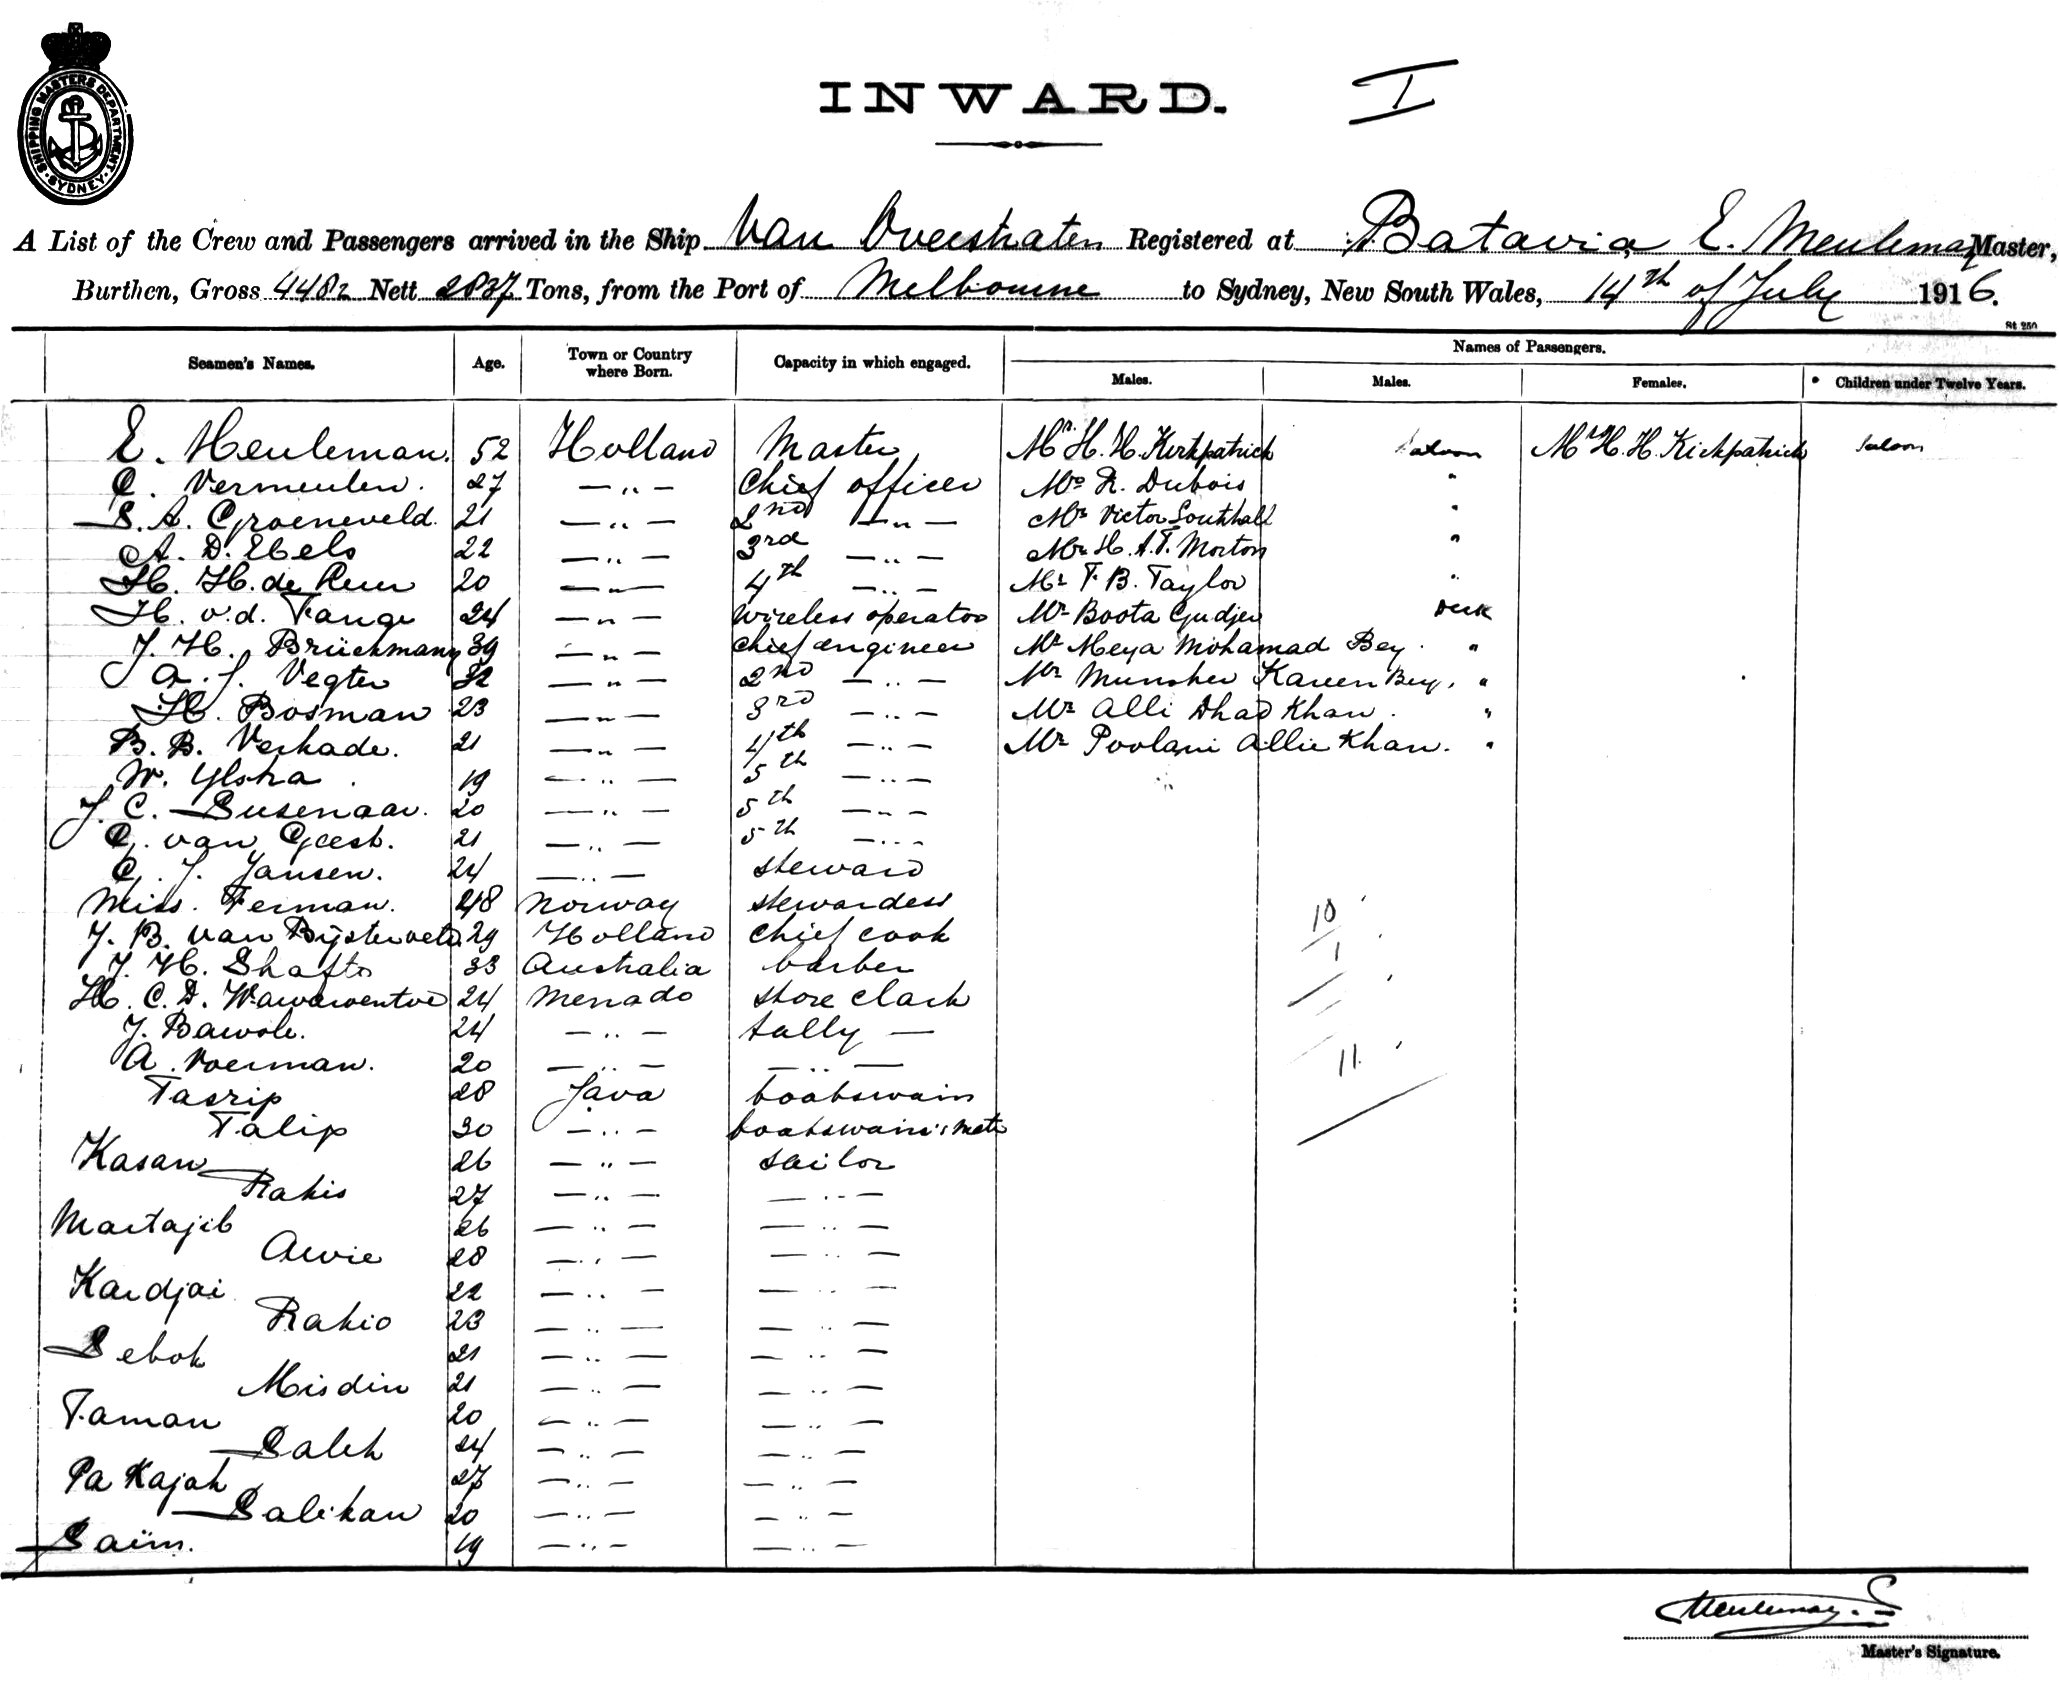 SHIPPING MASTERS DEPARTMENT · SYDNEY ·
INWARD. I
A List of the Crew and Passengers arrived in the Ship Van Overstraten Registered at Batavia, E. Meuleman Master,
Burthen, Gross 4482 Nett 2837 Tons, from the Port of Melbourne to Sydney, New South Wales, 14th of July 1916.
St 250
Seamen's Names. Age. Town or Country where Born. Capacity in which engaged. Names of Passengers.
Males. Males. Females. Children under Twelve Years.
E. Meuleman. 52 Holland Master Mr H. H. Kirkpatrick Saloon Mrs H. H. Kirkpatrick Saloon
C. Vermeulen. 27 — " — Chief officer Mr R. Dubois "
S. A. Groeneveld. 21 — " — 2nd — " — Mr Victor Southall "
A. D. Ebels 22 — " — 3rd — " — Mr H. A. T. Morton "
H. H. de 20 — " — 4th — " — Mr F. B. Taylor "
H. v.d. Tange 24 — " — wireless operator Mr Boota Gudjer Deck
J. H. Brüchmann 39 — " — chief engineer Mr Meya Mohamad Bey. "
A. J. Vegter 32 — " — 2nd — " — Mr Munsher Kareen Bey. "
H. Bosman 23 — " — 3rd — " — Mr Alli Dhad Khan. "
B. B. Verkade. 21 — " — 4th — " — Mr Poolani Allie Khan. "
W. Ylstra 19 — " — 5th — " —
J. C. Susenaar. 20 — " — 5th — " —
C. van Geest. 21 — " — 5th — " —
C. J. Jansen. 24 — " — steward
Miss. Ferman. 48 Norway stewardess
J. B. van Bijsterveld 29 Holland chief cook 10
J. H. Shafto 33 Australia barber 1
H. C. D. Wawaroentoe 24 Menado store clark
J. Bawole. 24 — " — tally —
A. Voerman. 20 — " — — " — 11.
Tasrip 28 Java boatswain
Talip 30 — " — boatswain's mate
Kasan 26 — " — sailor
Rakis 27 — " — — " —
Martajib 26 — " — — " —
Awie 28 — " — — " —
Kardjai 22 — " — — " —
Rakio 23 — " — — " —
Sebok 21 — " — — " —
Misdin 21 — " — — " —
Taman 20 — " — — " —
Saleh 24 — " — — " —
Pa Kajah 27 — " — — " —
Salikan 20 — " — — " —
Saïm. 19 — " — — " —
Meuleman. E
Master's Signature.